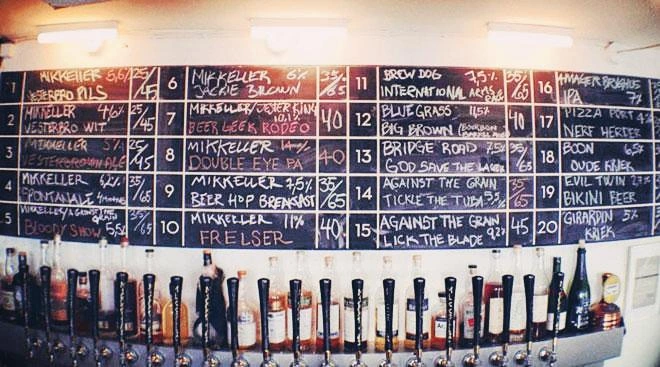 1 MIKKELLER 5,6% 25/45
VESTERBRO PILS
2 MIKKELLER 4,6% 25/45
VESTERBRO WIT
3 MIKKELLER 5% 25/45
VESTERBRO ALE
4 MIKKELLER 6,2% 35/65
SPONTANALE
5 MIKKELLER/AGAINST THE GRAIN 35/65
BLOODY SHOW 5,5%
6 MIKKELLER 6% 35/65
JACKIE BROWN
7 MIKKELLER/ KING 40
BEER GEEK RODEO 10,1%
8 MIKKELLER 40
DOUBLE EYE PA
9 MIKKELLER 7,5% 35/65
BEER HOP BREAKFAST
10 MIKKELLER 11% 40
FRELSER
11 BREW DOG 7,5% 35/65
INTERNATIONAL ARMS
12 BLUE GRASS 11,5% 40
BIG BROWN (BOURBON
13 BRIDGE ROAD 7,5% 35/65
GOD SAVE THE LAGER
14 AGAINST THE GRAIN 35/65
TICKLE THE TUBA 5,5%
15 AGAINST THE GRAIN 45
LICK THE BLADE 9,2%
16 AMAGER BRYGHUS
IPA 7%
17 PIZZA PORT
NERF HERDER
18 BOON 6,5%
OUDE KRIEK
19 EVIL TWIN 2,7%
BIKINI BEER
20 GIRARDIN 5%
KRIEK